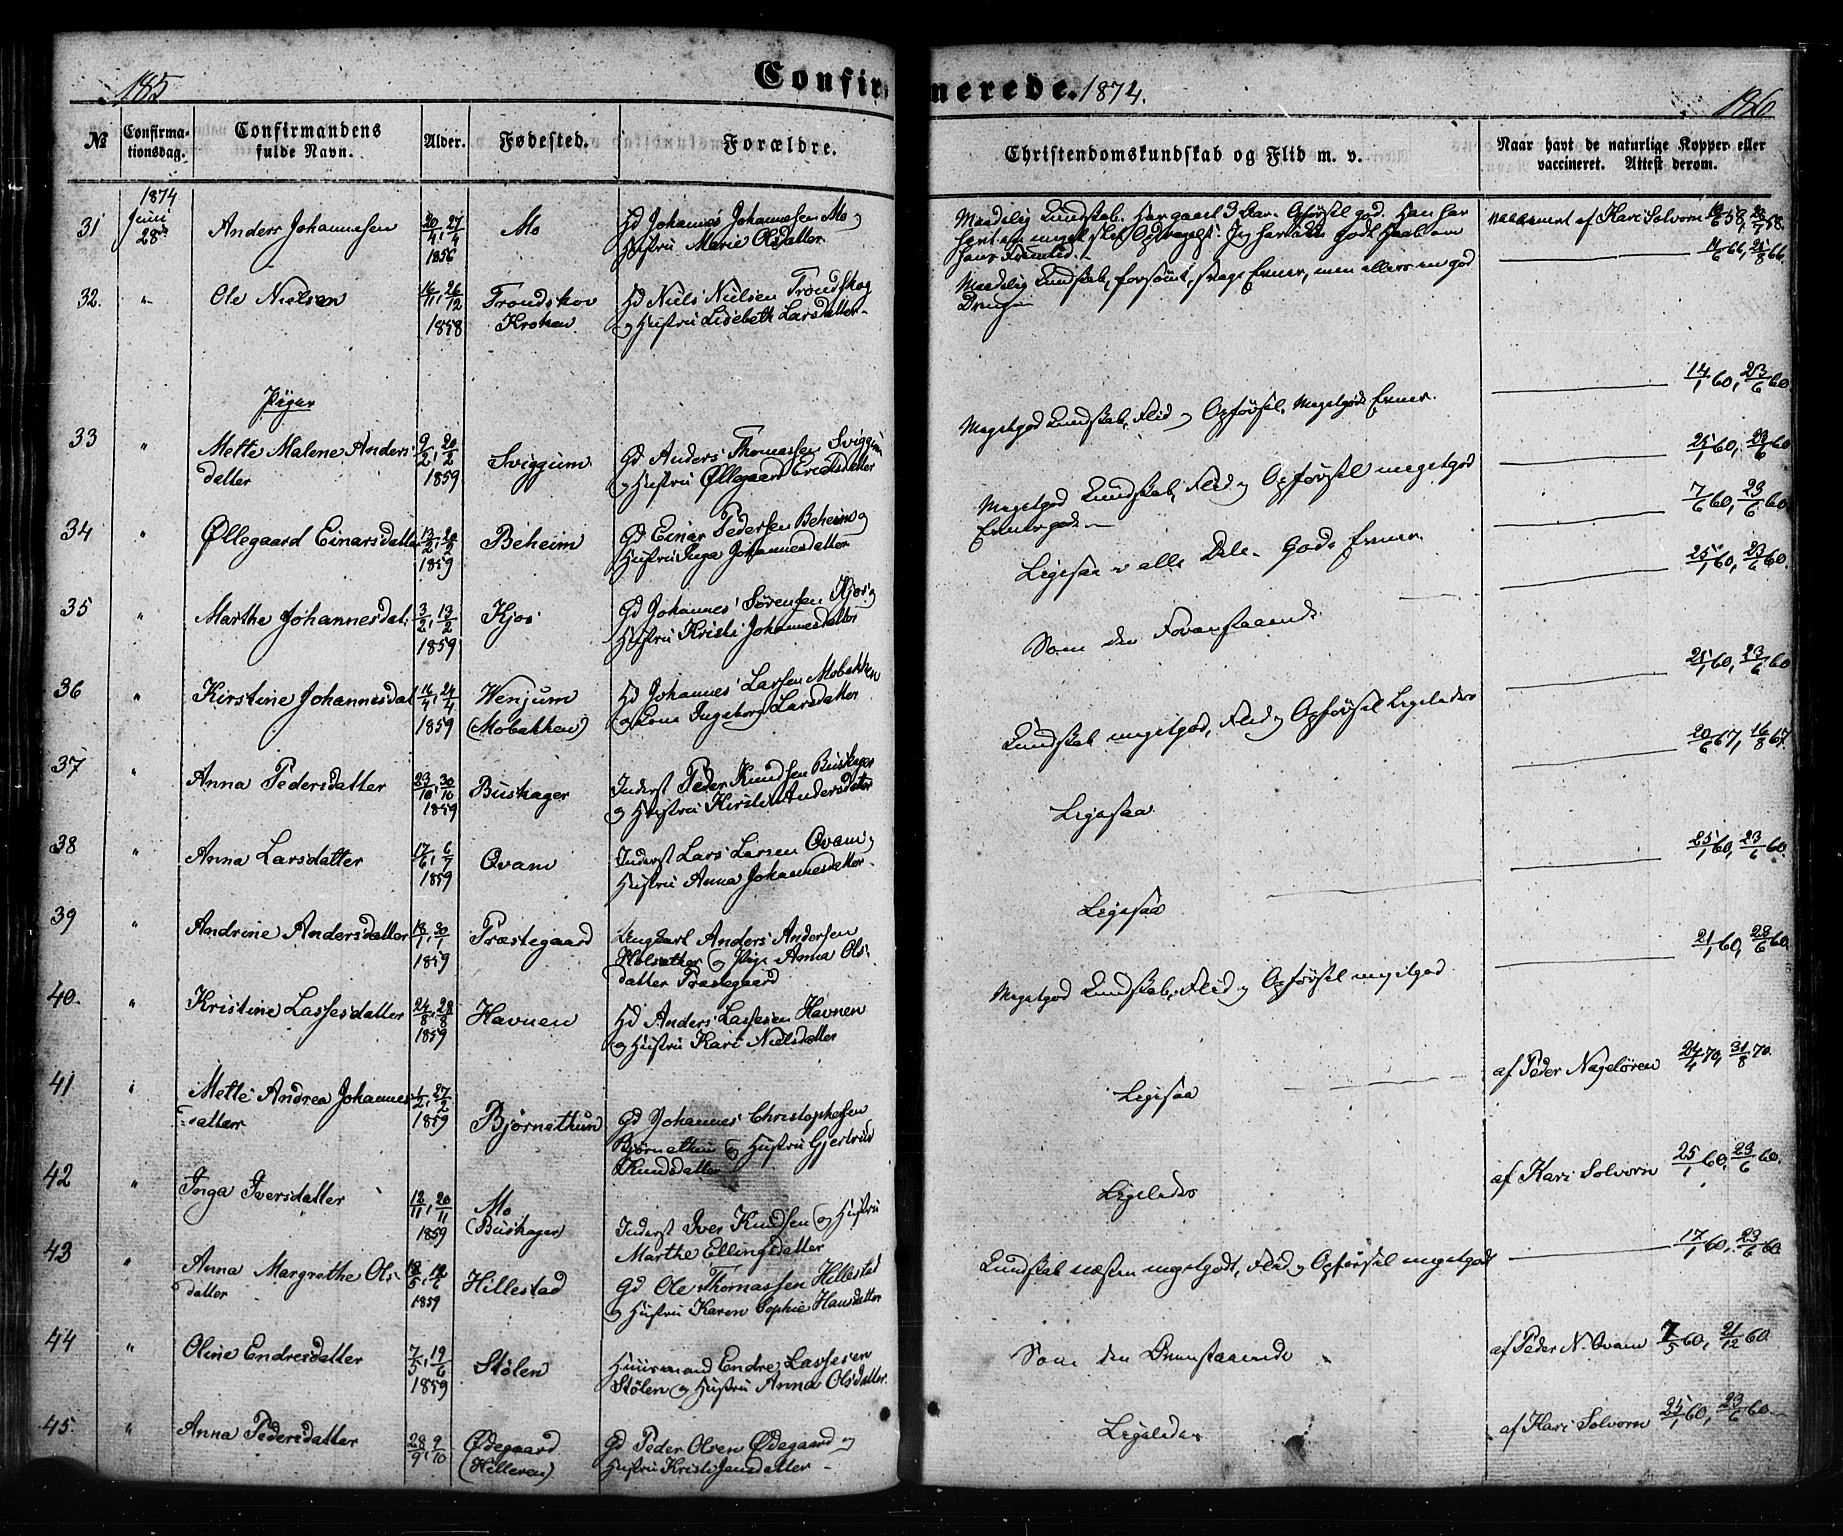 185
Confirmerede. 1874.
186
№
Confirma-
tionsdag.
Confirmandens
fulde Navn.
Alder.
Fødested.
Forældre.
Christendomskundskab og Flid m. v.
Naar havt de naturlige Kopper eller
vaccineret. Attest derom.
1874
31 Juni 28 Anders Johannesen 20/4, 27/4 1856 Mo
Hd Johannes Johannesen Mo og
Hustru Marie Olsdatter
Maadelig Kundskab. Har gaaet 3 Aar. Opførsel god. Han har
hans Fremtid.
vaccineret af Kari Solvorn 58, 58.
66, 25/8 66.
32. " Ole Nielsen 16/11, 26/12 1858 Trondskov
Kroken
Hd Niels Nielsen Trondskog
og Hustru Lisebeth Larsdatter
Maadelig Kundskab, forsømt, svage Evner, men ellers en god
Dreng
14/1 60, 23/6 60.
Piger
33 " Mette Malene Anders-
datter 9/2, 20/2 1859 Sviggum
Gd Anders Thomassen Sviggum
og Hustru Øllegaard Ericksdatter
Megetgod Kundskab, Flid og Opførsel. Megetgode Evner.
25/1 60, 23/6 60
34 " Øllegaard Einarsdatter 13/2, 20/2 1859 Beheim
Gd Einar Pedersen Beheim og
Hustru Inga Johannesdatter
Megetgod Kundskab, Flid og Opførsel megetgod
Evner gode
7/6 60, 23/6 60
35 " Marthe Johannesdat. 3/2, 13/2 1859 Kjos
Gd Johannes Sørensen Kjos og
Hustru Kristi Johannesdatter
Ligesaa i alle Dele. Gode Evner.
25/1 60, 23/6 60.
36 " Kirstine Johannesdat 16/4, 24/4 1859 Wenjum
(Mobakken)
Hd Johannes Larsen Mobakken
og Kone Ingeborg Larsdatter
Som den Foranstaaende
25/1 60, 23/6 60
37 " Anna Pedersdatter 23/10, 30/10 1859 Buskager
Inderst Peder Knudsen Buskager
og Hustru Kirsti Andersdatter
Kundskab megetgod, Flid og Opførsel Ligeledes
20/6 67, 16/8 67.
38 " Anna Larsdatter 17/6, 6/7 1859 Qvam
Inderst Lars Larsen Qvam og
Hustru Anna Johannesdatter
Ligesaa
25/1 60, 23/6 60.
39 " Andrine Andersdatter 18/1, 30/1 1859 Præstegaard
Ungkarl Anders Andersen
Holsæther og Pige Anna Ols-
datter Præstegaard
Ligesaa
21/1 60, 28/6 60.
40. " Kristine Lassesdatter 24/8, 28/8 1859 Havnen
Hd Anders Lassesen Havnen
og Hustru Kari Nielsdatter
Megetgod Kundskab, Flid og Opførsel megetgod
41 " Mette Andrea Johannes-
datter 1/2, 27/2 1859 Bjørnethun
Gd Johannes Christophersen
Bjørnethun og Hustru Gjertrud
Knudsdatter
Ligesaa
af Peder Nageløren 24/4 70, 31/8 70.
42 " Inga Iversdatter 12/11, 20/11 1859 Mo
(Buskager)
Inderst Iver Knudsen og Hustru
Marthe Ellingsdatter
Ligeledes
af Kari Solvorn 25/1 60, 23/6 60.
43 " Anna Margrethe Ols-
datter 18/5, 12/6 1859 Hillestad
Gd Ole Thomassen Hillestad
og Hustru Karen Sophie Hansdatter
Kundskab næsten megetgodt, Flid og Opførsel megetgodt
17/1 60, 23/6 60
44 " Oline Endresdatter 7/5, 19/6 1859 Stølen
Huusmand Endre Lassesen
Stølen og Hustru Anna Olsdatter.
Som den Ovenstaaende
af Peder N. Qvam 7/5 60, 21/12 60
45. " Anna Pedersdatter 28/9, 9/10 Ødegaard
(Hilleren)
Gd Peder Olsen Ødegaard og
Hustru Kristi Jensdatter
Ligeledes
af Kari Solvorn 25/1 60, 23/6 60.